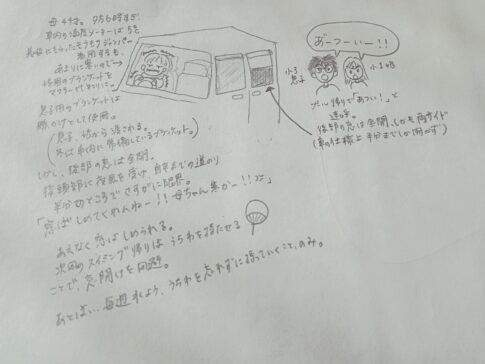 母44才。夕方6時すぎ。
車内の温度メーターは5を
義母にもらったそうもうジャンパー
着用するも、
あまりに寒いので
娘用のブランケットを
マフラー代わりに。
息子用のブランケットは
膝かけとして使用。
(息子、娘から渡される。
冬は車内に常備しているブランケット。)
しかし、後部の窓は全開。
後頭部に夜風を受け、自宅までの道のり
半分のところでさすがに限界。
「窓ばしめてくれんねー!!母ちゃん寒かー!!」
あえなく窓はしめられる。
次回のスイミング帰りは うちわを持たせる
ことで、窓開けを回避。
あとは… 毎週 うちわを忘れずに持っていくこと、のみ。
あーつーいー!!
小3
息子
小1娘
プール帰りで「あつい!」と
連呼。
後部の窓は全開、しかも両サイド
(車の仕様上 半分までしか開かず)